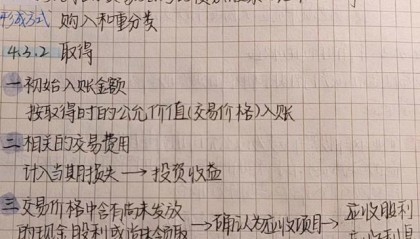 形成方式 购入和重分类
4.3.2 取得
一初始入账金额
按取得时的公允价值(交易价格)入账
二相关的交易费用
计入当期损失→投资收益
三交易价格中含有尚未发放
的现金股利或尚未领取→确认为应收项目→应收股利